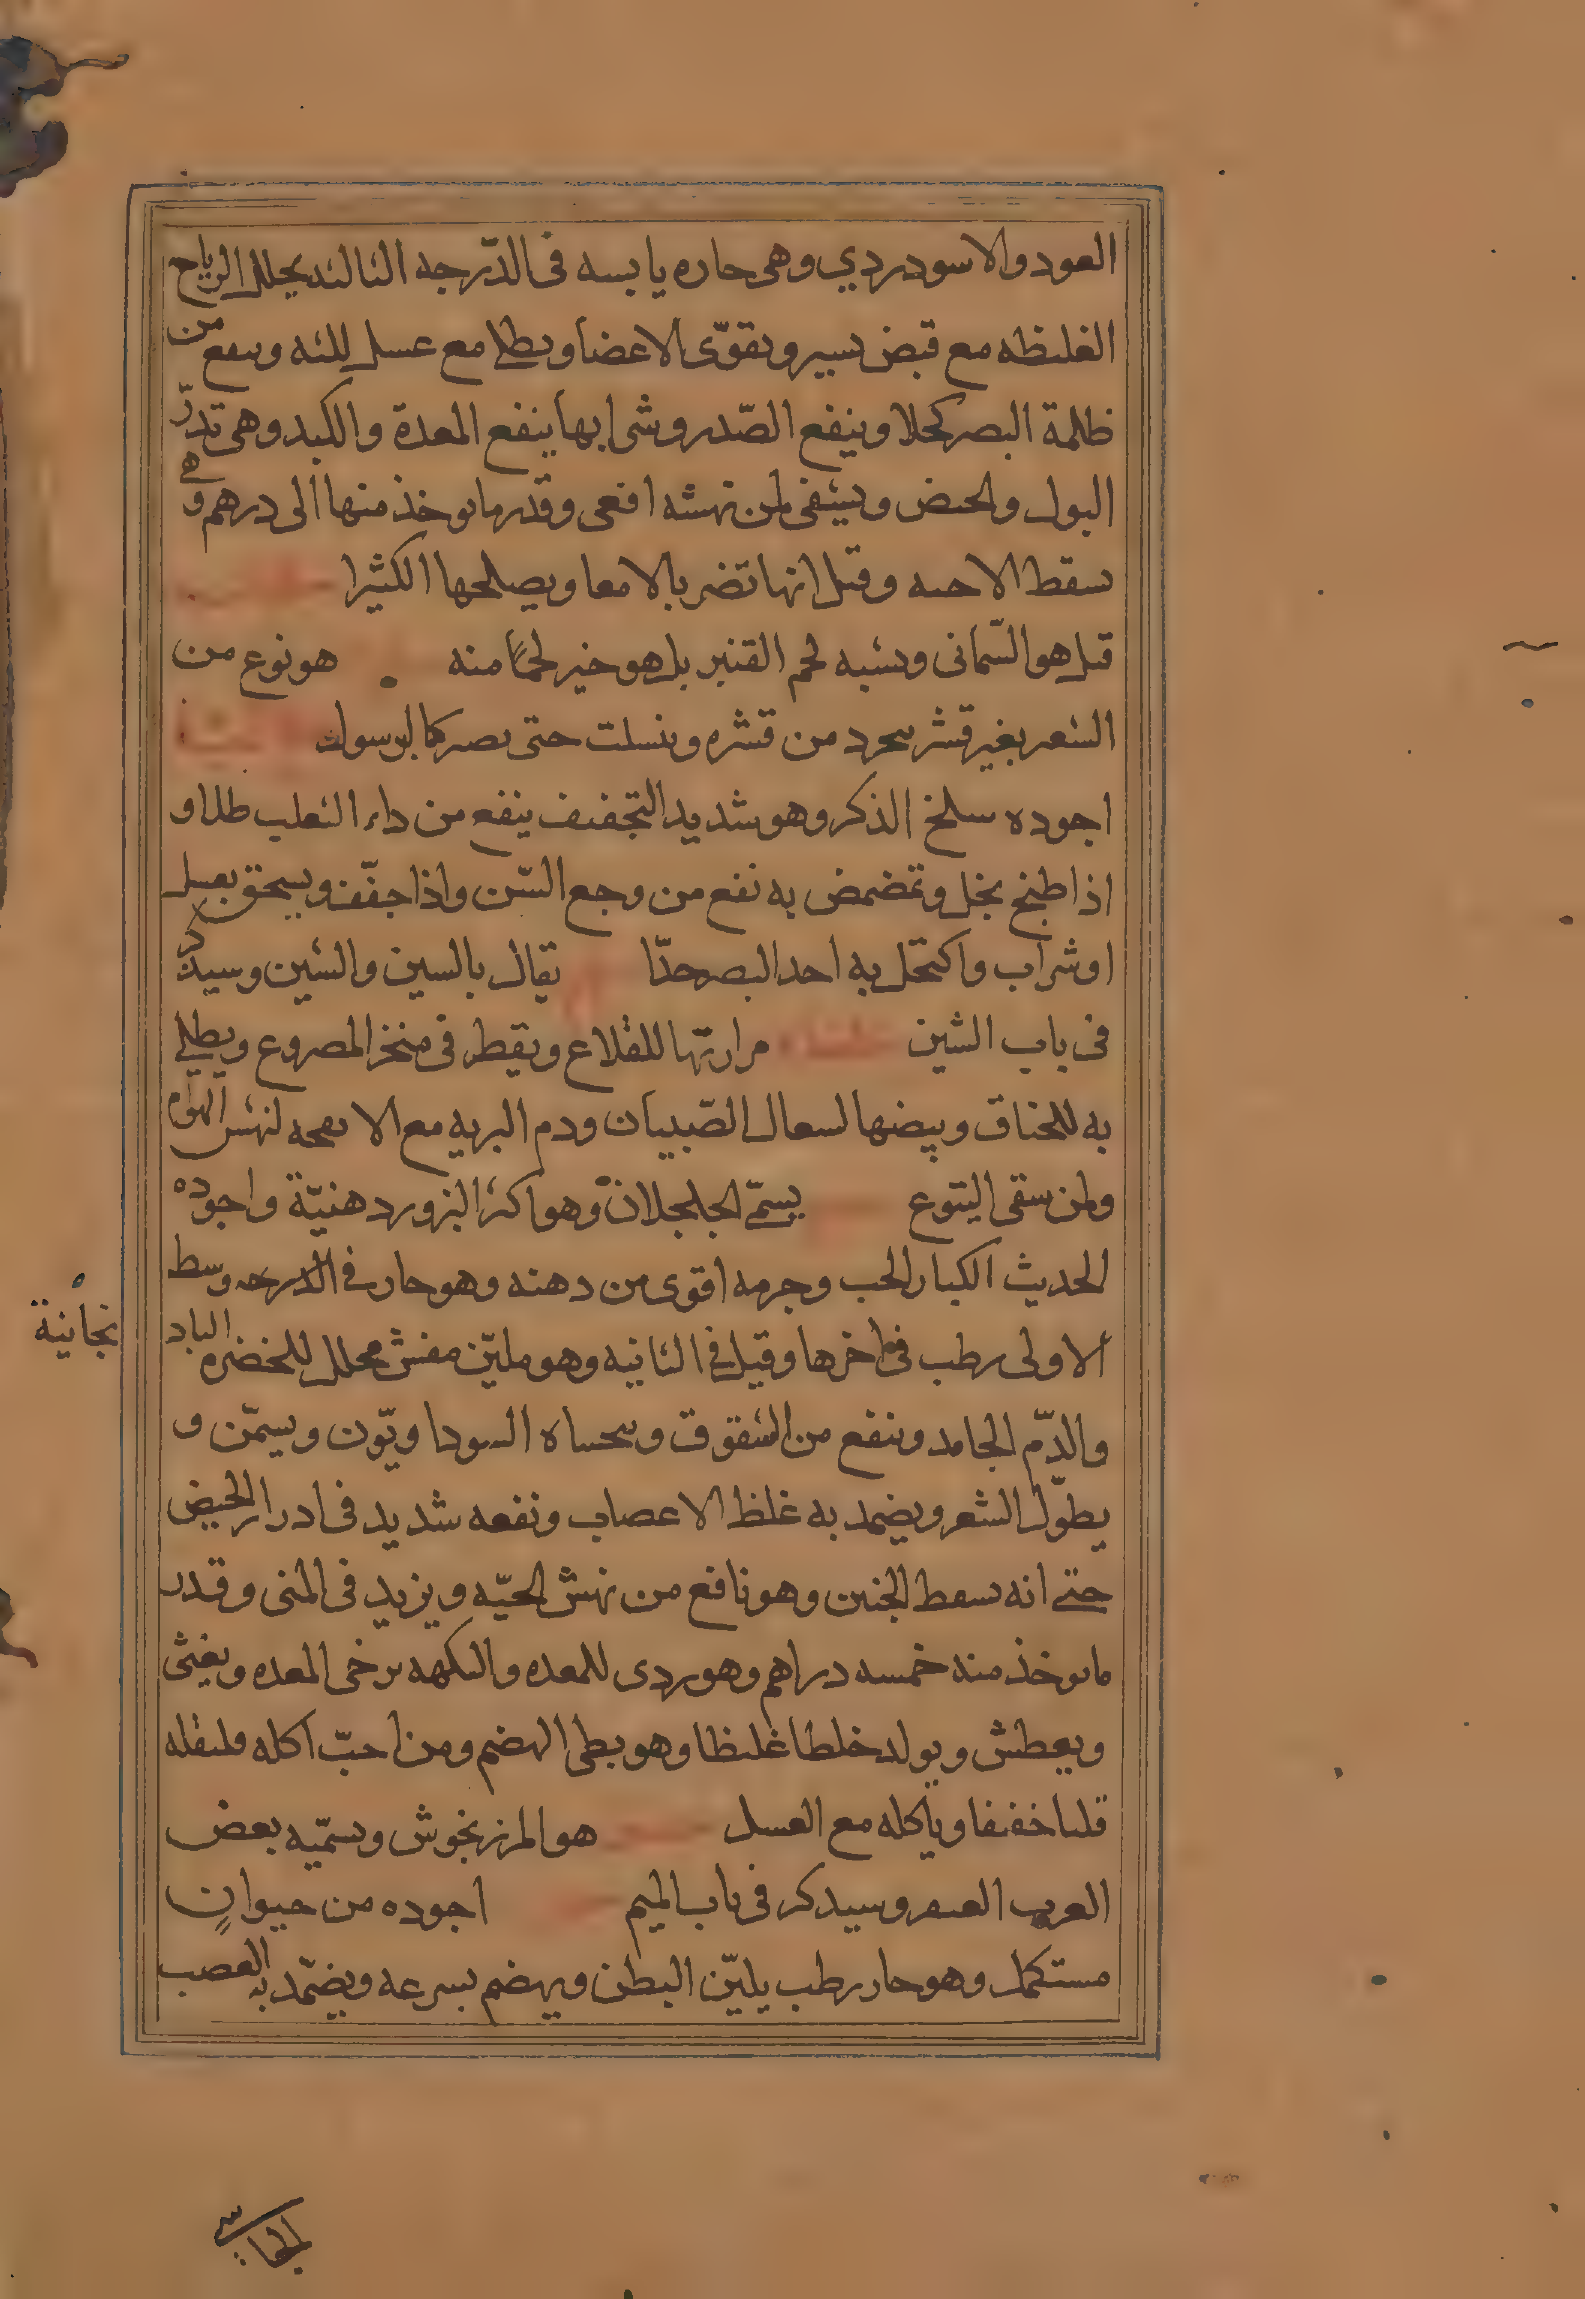 العود والاسود ردي وهى حاره يابسه فى الدّرجه الثالثه يحلل الرياح
الغليظه مع قبض يسير ويقوّى الاعضا ويطلى مع عسل للثه وينفع من
ظلمة البصر كحلا وينفع الصّدر وشرابها ينفع المعدة والكبد وهى تدرّ
البول والحيض ويشفى لمن نهشه افعى وقدر ما يوخذ منها الى درهم وهى
سقط الاجنه وقيل انها تضر بالامعا ويصلحها الكثيرا
قيل هو السّمانى ويشبه لحم القنبر بل هو خير لحمًا منه هو نوع من
الشعير بغير قشر يتجرد من قشره وينسلت حتى يصير كالبر سوا
اجوده سلخ الذكر وهو شديد التجفيف ينفع من داء الثعلب طلا و
اذا طبخ بخل وتمضمض به نفع من وجع السّن واذا جفّف ويسحق بعسل
او شراب واكتحل به احد البصر جدّا يقال بالسين والشين وسيذكر
فى باب الشين مرارتها للقلاع ويقطر فى منخر المصروع ويطلى
به للخناق وبيضها لسعال الصّبيان ودم البريه مع الانفحه لنهش الهوام
ولمن سقى اليتوع يسمّى الجلجلان وهو اكثر البزور دهنيّة واجوده
الحديث الكبار الحب وجرمه اقوى من دهنه وهو حار فى الدرجه وسط
الاولى رطب فى اخرها وقيل فى الثانيه وهو مليّن مفش محلل للخضره الباد
نجانية
والدّم الجامد وينفع من الشقوق ويتحساه السوداويّون ويسمّن و
يطوّل الشعر ويضمد به غلظ الاعصاب ونفعه شديد فى ادرار الحيض
حتى انه يسقط الجنين وهو نافع من نهش الحيّه ويزيد فى المنى وقدر
ما يوخذ منه خمسه دراهم وهو ردى للمعده والنكهه يرخى المعده ويغثى
ويعطش ويولد خلطا غليظا وهو بطى الهضم ومن احبّ اكله فليقله
قليا خفيفا وياكله مع العسل هو المرزنجوش ويسمّيه بعض
العرب العبقر وسيذكر فى باب الميم اجوده من حيوانٍ
مستكمل وهو حار رطب يليّن البطن ويهضم بسرعه ويضمّد به العصب